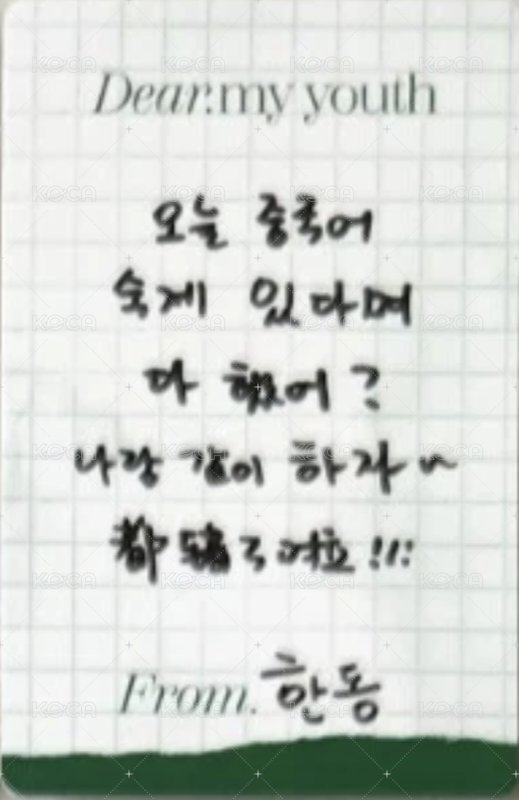 Dear.my youth
오늘 중국어
숙제 있다며
다 했어?
나랑 같이 하자~
都 了 啦!!!
From. 한동
KOCA